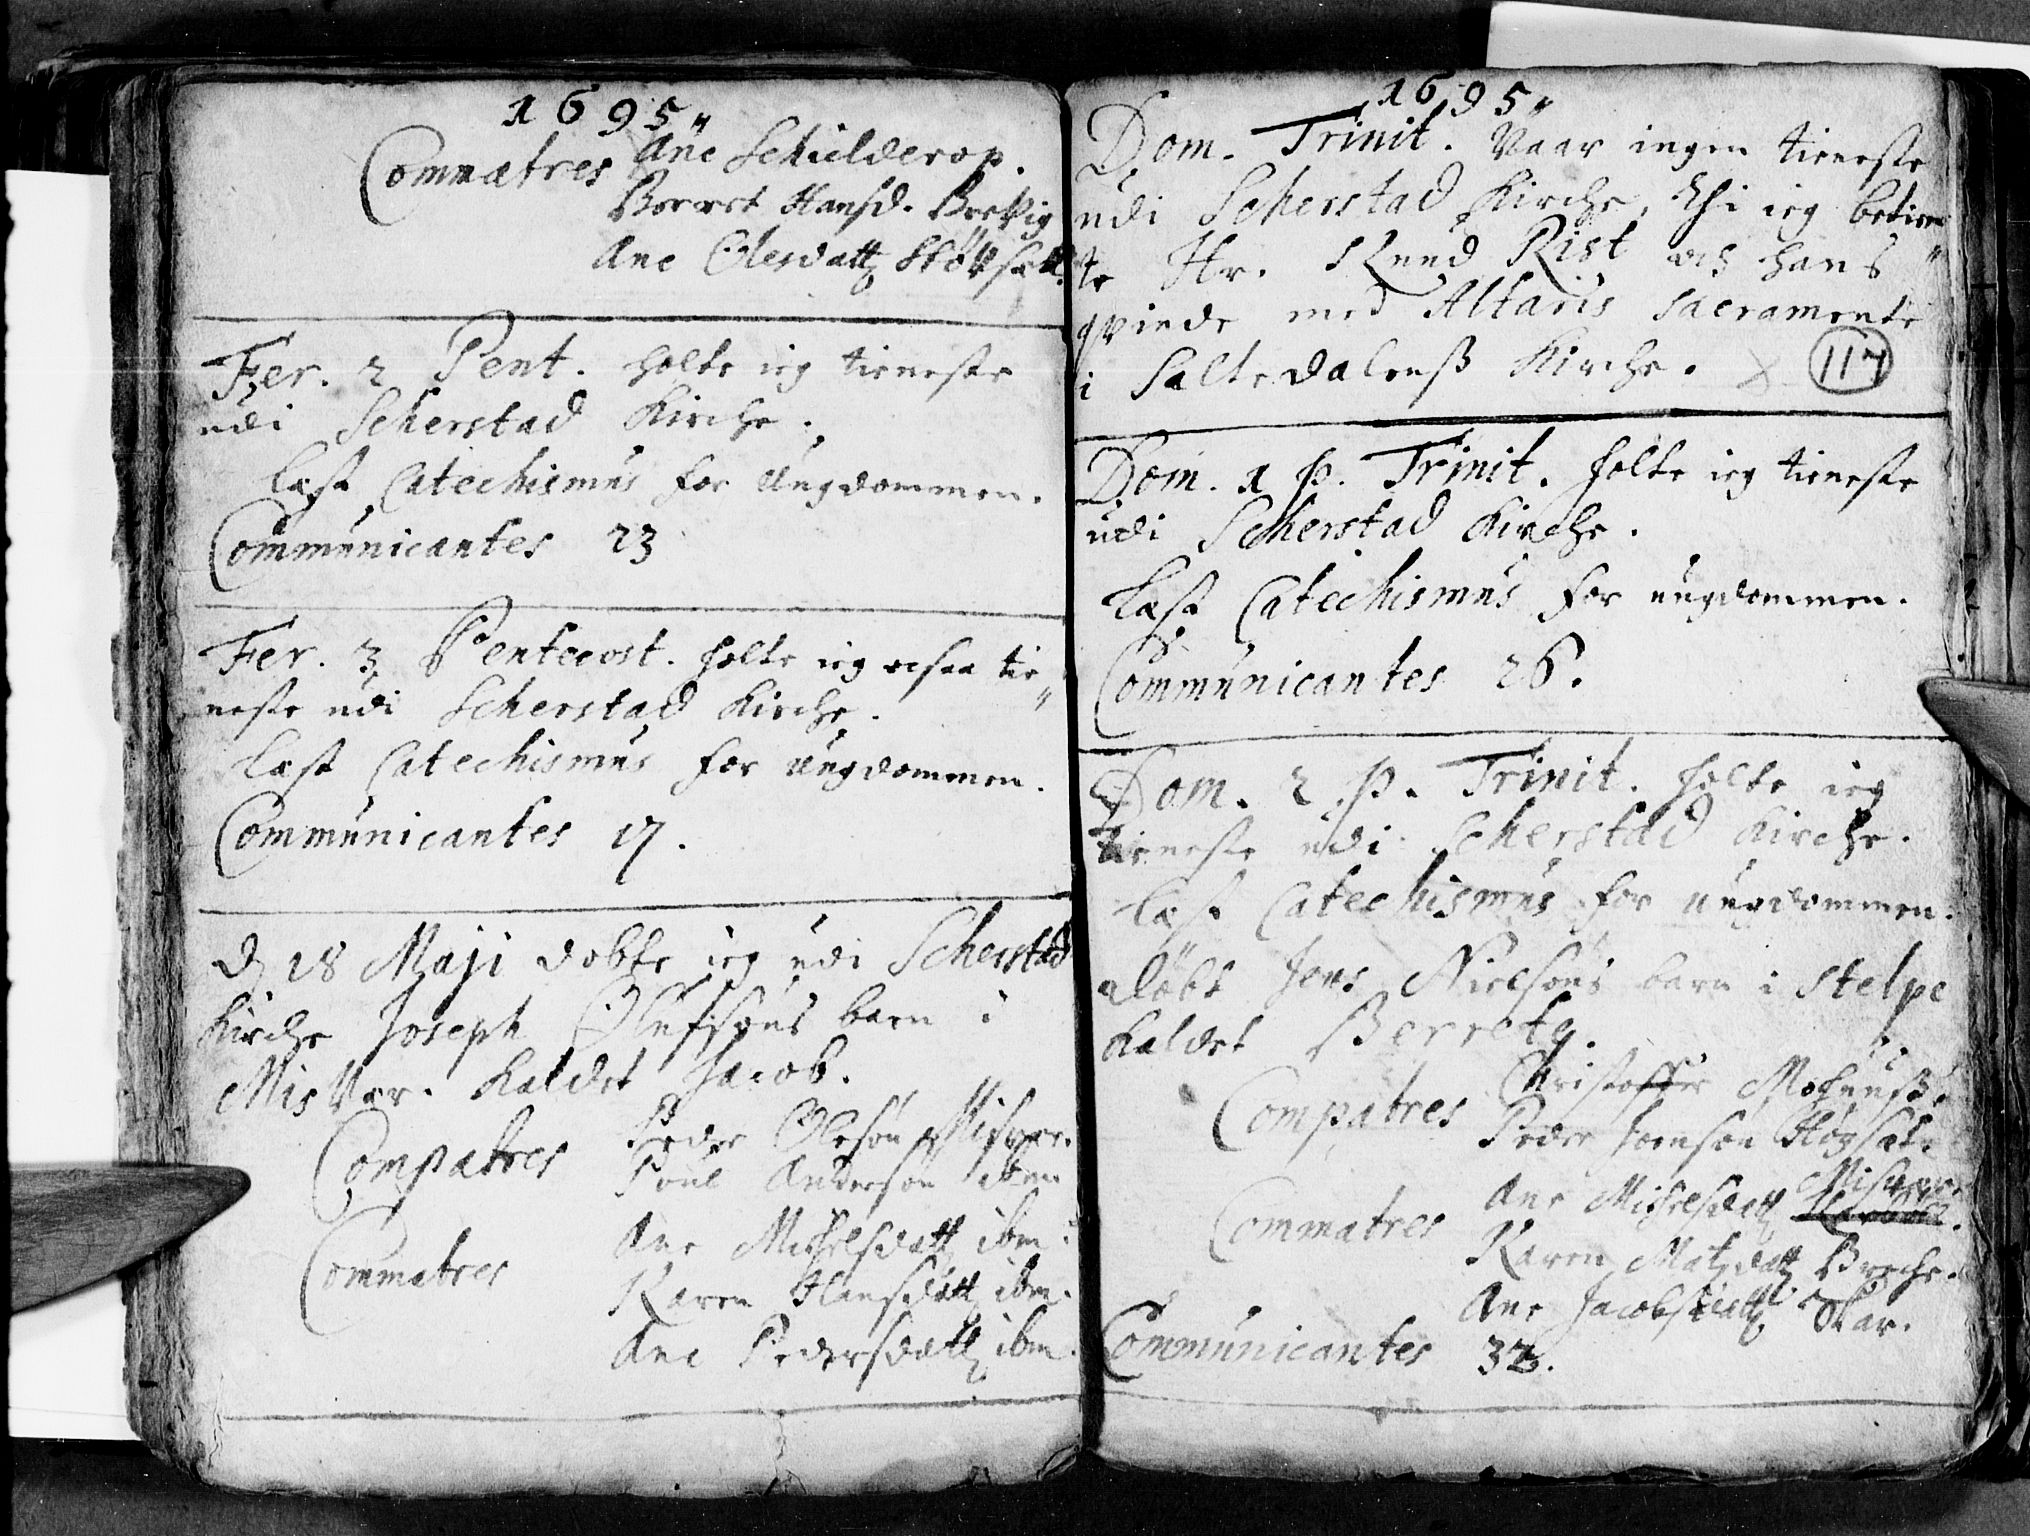 1695
Commatres Ane Schielderop.
Berret Hansd. Brekvig
Ane Olesdatt
Fer. 2 Pent. holte ieg tieneste
udi Scherstad Kirche.
læst Catechismus for Ungdommen.
Communicantes 23
Fer. 3 Pentecost. holte ieg ocsaa tie
neste udi Scherstad Kirche.
læst Catechismus for Ungdommen.
Communicantes 17.
d 18 Maji døbte ieg udi Scherstad
Kirche Joseph Olufsøns barn i
Misvær. kaldet Jacob.
Compatres Peder Olesøn Misvær.
Poul Andersøn ibm
Commatres Ane Michelsdatt ibm
Karen Hansdatt ibm.
Ane Pedersdatt ibm.
1695
Dom. Trinit. Vaar ingen tieneste
udi Scherstad Kirche, thi ieg betien
te Hr. Knud Rist och hans
qvinde med Altaris Sacramente
i Saltedalens Kirche. 117
Dom. 1 p. Trinit. holte ieg tieneste
udi Scherstad Kirche.
læst Catechismus for ungdommen.
Communicantes 26.
Dom. 2 p. Trinit. holte ieg
tieneste udi Scherstad Kirche.
læst Catechismus for ungdommen.
døbt Jens Nielsøns barn i Stelpe
kaldet Berrete.
Compatres Christoffer
Peder Joensøn
Commatres Ane Michelsdatt Misvær.
Karen Matzdatt Breche.
Ane Jacobsdatt Skar.
Communicantes 32.